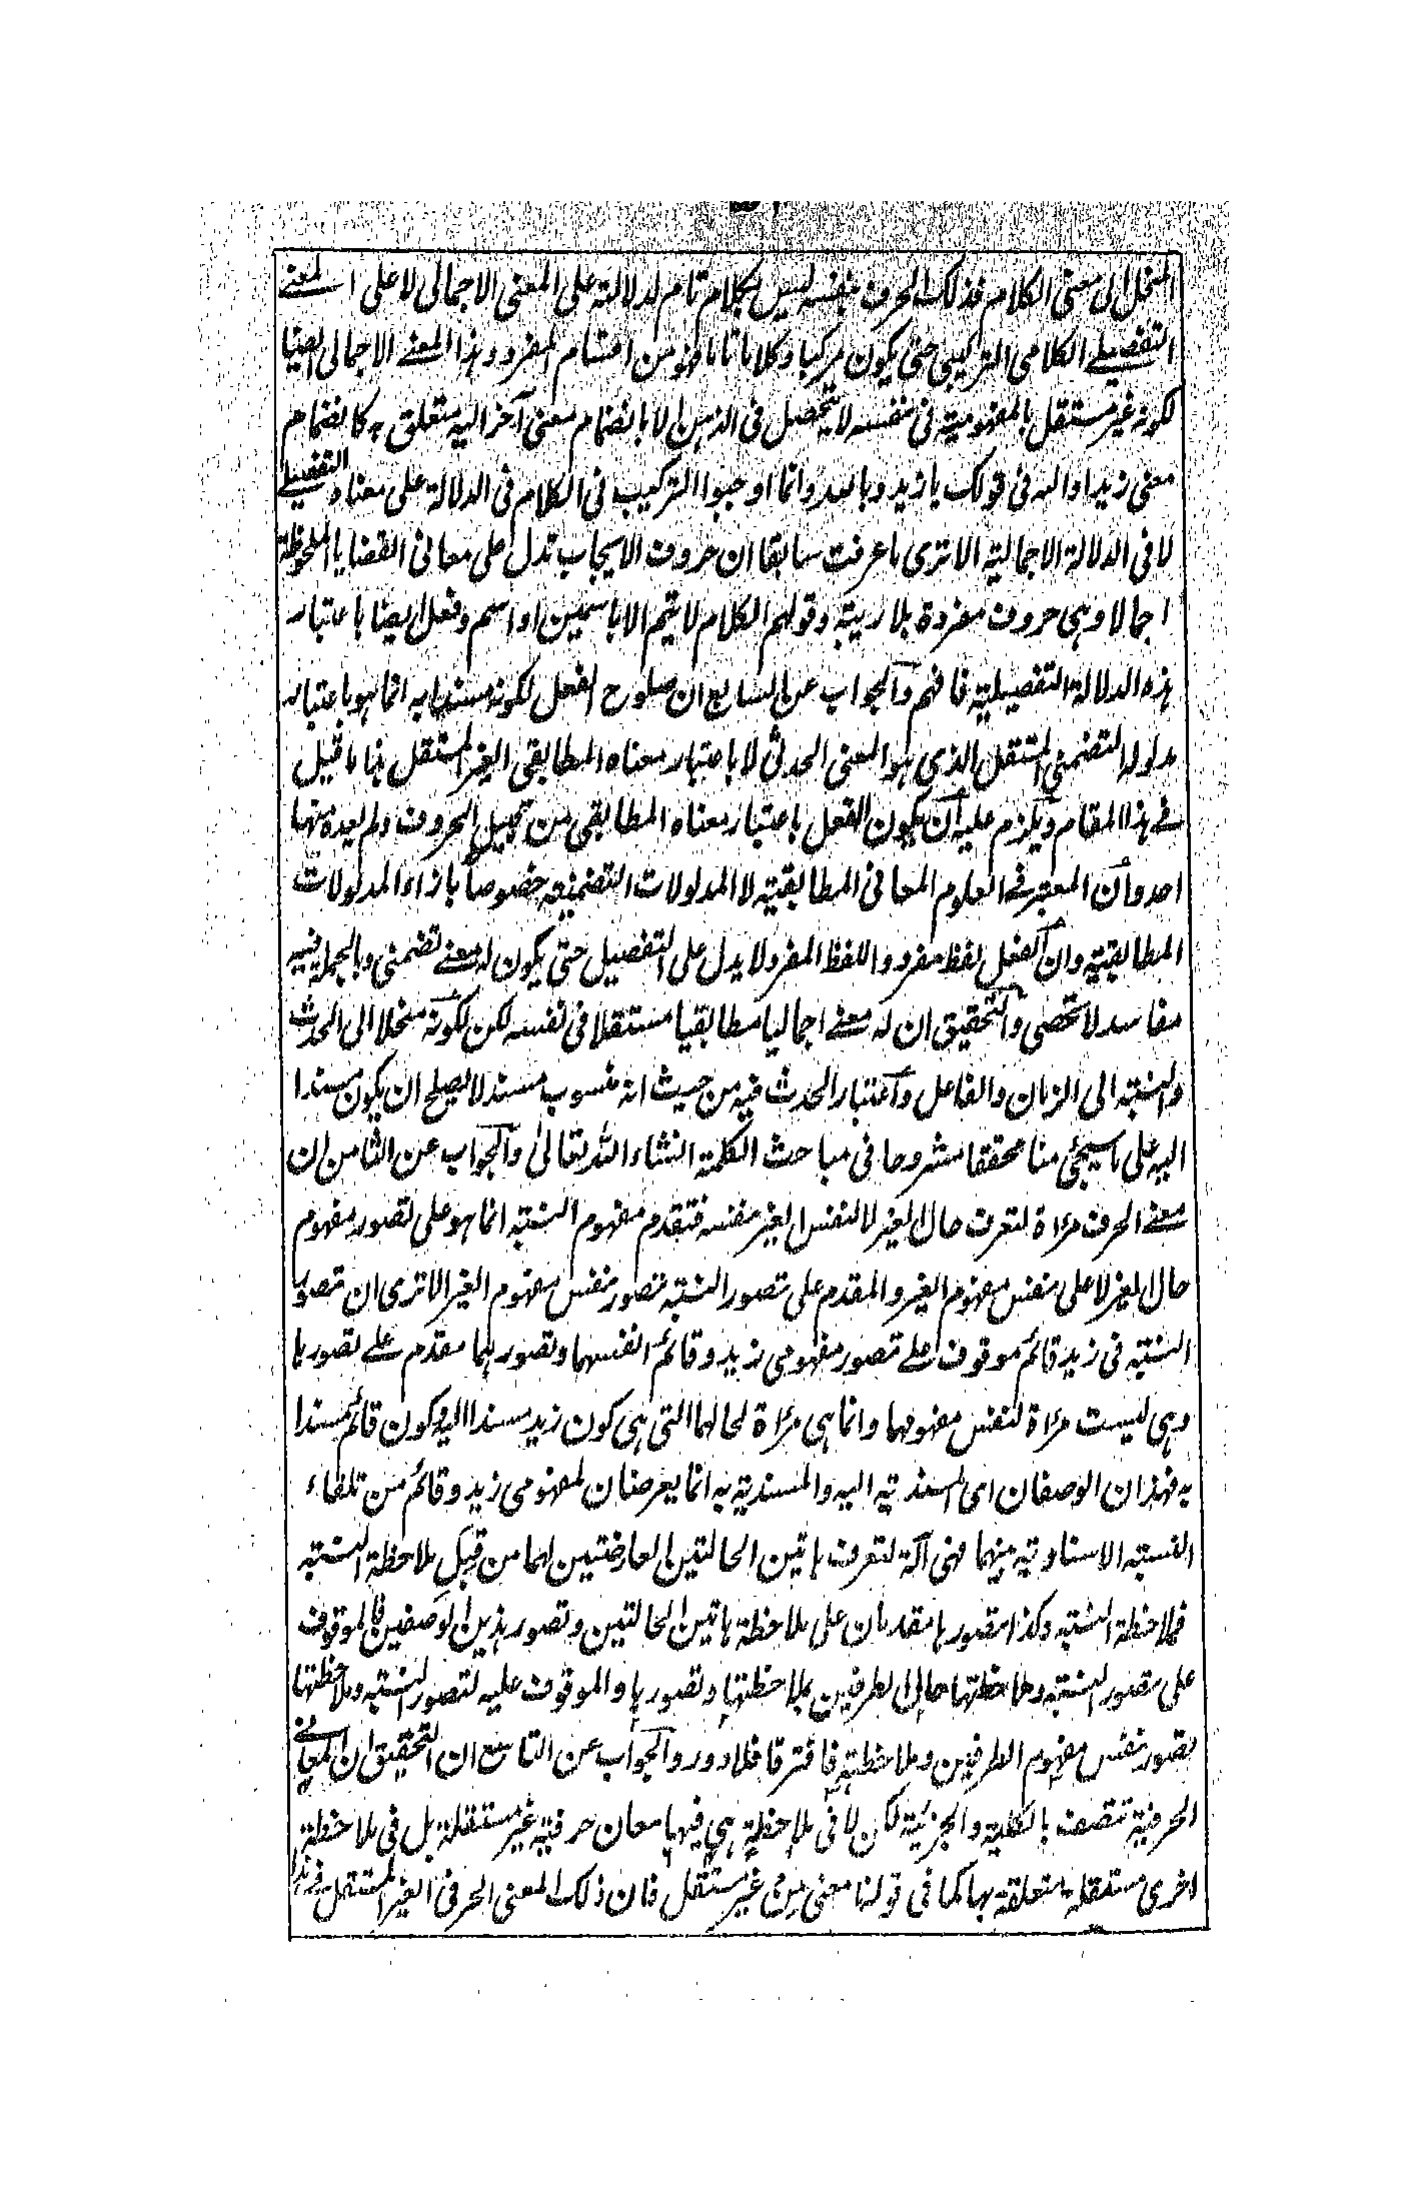 المنحل الى معنى الكلام فذلك الحرف بنفسه ليس بكلام تام لدلالته على المعنى الاجمالى لا على المعنے
التفصيلے الكلامى التركيبى حتى يكون مركبا وكلاما تاما فهو من اقسام المفرد وهذا المعنے الاجمالى ايضا
لكونه غير مستقل بالمفهومية فى نفسه لا يتحصل فى الذهن الا بانضمام معنى آخر اليه متعلق به كانضمام
معنى زيد او الله فى قولك يا زيد ويا الله وانما اوجبوا التركيب فى الكلام فى الدلالة على معناه التفصيلے
لا فى الدلالة الاجمالية الا ترى ما عرفت سابقا ان حروف الايجاب تدل على معانى القضايا الملحوظة
اجمالا وهى حروف مفردة بلا ريبة وقولهم الكلام لا يتم الا باسمين او اسم وفعل ايضا باعتبار
هذه الدلالة التفصيلية فافهم والجواب عن السابع ان صلوح الفعل لكونه مسندا به انما هو باعتبار
مدلوله التضمنى المستقل الذى هو المعنى الحدثى لا باعتبار معناه المطابقى الغير المستقل هذا ما قيل
فے هذا المقام ويلزم عليه ان يكون الفعل باعتبار معناه المطابقى من قبيل الحروف ولم يعده منها
احد وأن المعتبر فے العلوم المعانى المطابقية لا المدلولات التضمنية خصوصا بازاء المدلولات
المطابقية وان الفعل لفظ مفرد واللفظ المفرد لا يدل على التفصيل حتى يكون له معنے تضمنى وبالجملة فيه
مفاسد لا تحصى والتحقيق ان له معنے اجماليا مطابقيا مستقلا فى نفسه لكن لكونه منحلا الى الحدث
والنسبة الى الزمان والفاعل واعتبار الحدث فيه من حيث انه منسوب مسند لا يصلح ان يكون مسندا
اليه على ما سيجئ منا محققا مشروحا فى مباحث الكلمة انشاء الله تعالى والجواب عن الثامن ان
معنے الحرف مرءاة لتعرف حال الغير لا لنفس الغير نفسه فتقدم مفهوم النسبة انما هو على تصور مفهوم
حال الغير لا على نفس مفهوم الغير والمقدم على تصور النسبة تصور نفس مفهوم الغير الا ترى ان تصور
النسبة فى زيد قائم موقوف علے تصور مفهومى زيد وقائم انفسهما وتصورهما مقدم علے تصورها
وهى ليست مرءاة لنفس مفهومهما وانما هى مرءاة لحالهما التى هى كون زيد مسندا اليه وكون قائم مسندا
به فهذان الوصفان اى المسندية اليه والمسندية به انما يعرضان لمفهومى زيد وقائم من تلقاء
النسبة الاسنادية بينهما فهى آلة لتعرف هاتين الحالتين العارضتين لهما من قبل ملاحظة النسبة
فملاحظة النسبة وكذا تصورها مقدمان على ملاحظة هاتين الحالتين وتصور هذين الوصفين فالموقوف
على تصور النسبة وملاحظتها حال الطرفين بملاحظتها وتصورها والموقوف عليه لتصور النسبة وملاحظتها
تصور نفس مفهوم الطرفين وملاحظته فافترقا فلا دور والجواب عن التاسع ان التحقيق ان المعانے
الحرفية تتصف بالكلية والجزئية لكن لا فى ملاحظة هى فيها معان حرفية غير مستقلة بل فى ملاحظة
اخرى مستقلة متعلقة بها كما فى قولنا معنى من غير مستقل فان ذلك المعنى الحرفى الغير المستقل فے هذا